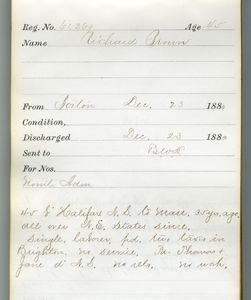 Reg. No. 61,269 Age 45
Name Richard Brown
From Boston Dec. 23 188
Condition,
Discharged Dec. 23 188
Sent to
For Nos.
45 fr Halifax N.S. to Mass. 35 yrs. ago
all over N.E. States since.
Single, laborer, pd. two taxes in
Brighton, no service. Pa. Thomas &
Jane d. N.S. no rels. no work.